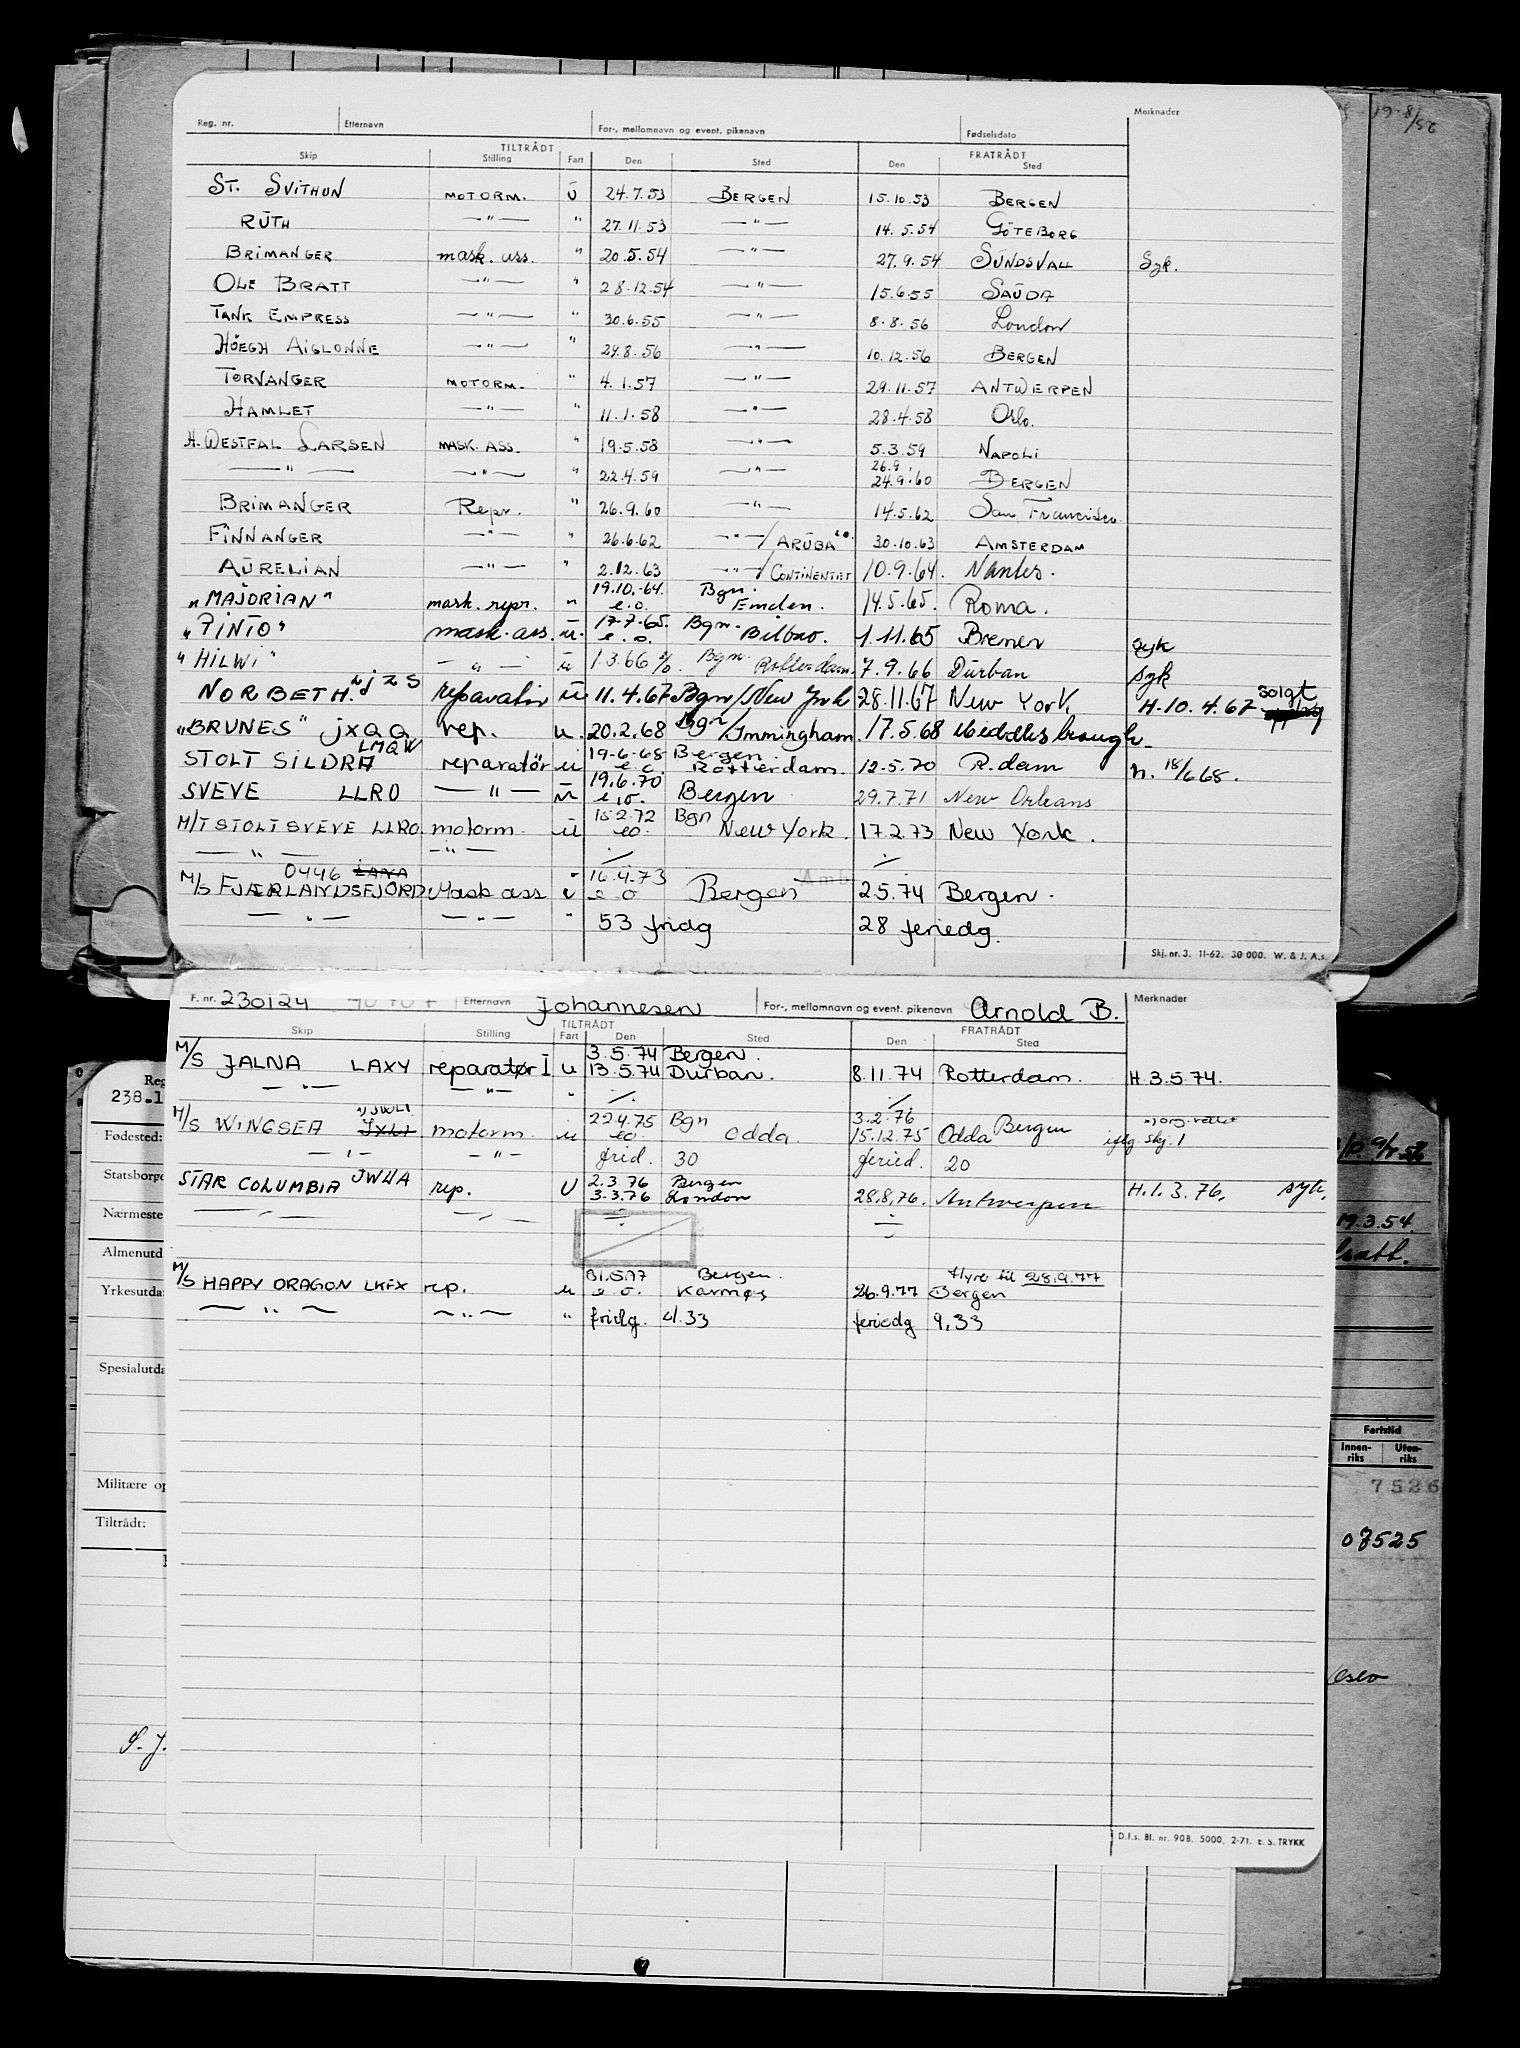 Reg. nr. Etternavn For-, mellomnavn og event. pikenavn Fødselsdato Merknader
TILTRÅDT FRATRÅDT
Skip Stilling Fart Den Sted Den Sted
ST. SVITHUN MOTORM. u 24.7.53 BERGEN 15.10.53 BERGEN
RUTH —"— " 27.11.53 —"— 14.5.54 GÖTEBORG
BRIMANGER mask. ass. " 20.5.54 —"— 27.9.54 SUNDSVALL Syk.
OLE BRATT —"— " 28.12.54 —"— 15.6.55 SAUDA
TANK EMPRESS —"— " 30.6.55 —"— 8.8.56 London
HÖEGH AIGLONNE —"— " 24.8.56 —"— 10.12.56 BERGEN
TORVANGER MOTORM. " 4.1.57 —"— 29.11.57 ANTWERPEN
HAMLET —"— " 11.1.58 —"— 28.4.58 Oslo.
H. WESTFAL LARSEN MASK. ASS. " 19.5.58 —"— 5.3.59 NAPOLI
—"— —"— " 22.4.59 —"— 26.9. 24.9.60 BERGEN
BRIMANGER Repr. " 26.9.60 —"— 14.5.62 San Francisco
FINNANGER —"— " 26.6.62 —"—/ARUBA e.o. 30.10.63 AMSTERDAM
AURELIAN —"— " 2.12.63 —"—/CONTINENTET 10.9.64. Nantes.
"MAJORIAN" mask. repr. " 19.10.-64. e.o. Bgn. Emden. 14.5.65. Roma.
"PINTO" mask. ass. u. 17.7.65. e.o. Bgn. Bilbao. 1.11.65 Bremen syk
"HILWI" —"— u 1.3.66 e/o. Bgn. Rotterdam. 7.9.66 Durban syk
NORBETH. LJZS reparatør u 11.4.67 Bgn/New York 28.11.67 New York. H.10.4.67 solgt
"BRUNES" JXQQ rep. u. 20.2.68 Bgn/Immingham. 17.5.68 Middlesbrough.
STOLT SILDRA LMQW reparatör u 19-6-68 e.o. Bergen Rotterdam. 12.5.70 R.dam h. 18/6 68.
SVEVE LLRO —"— u 19.6.70 e.o. Bergen 29.7.71 New Orleans
M/T STOLT SVEVE LLRO. motorm. u 15.2.72 eo. Bgn New York. 17.2.73 New York.
—"— —"— ./. ./.
0446 LANA
M/S FJÆRLANDSFJORD Mask ass u 16.4.73 e o Bergen 2.5.74 Bergen.
—"— —"— " 53 fridg 28 feriedg.
Skj. nr. 3. 11-62. 30 000. W. & J. A.s.
F. nr. 230124 Etternavn Johannesen For-, mellomnavn og event. pikenavn Arnold B. Merknader
TILTRÅDT FRATRÅDT
Skip Stilling Fart Den Sted Den Sted
M/S JALNA LAXY reparatør I u 3.5.74 13.5.74 Bergen. Durban. 8.11.74 Rotterdam. H.3.5.74.
—"— —"— " ./. ./.
M/S WINGSEA JWLI motorm. u 22.4.75 eo. Bgn Odda. 3.2.76 15.12.75 Odda Bergen iflg skj. 1
—"— —"— frid. 30 feried. 20
STAR COLUMBIA JWHA rep. U 2.3.76 3.3.76 Bergen London 28.8.76. Antwerpen H.1.3.76. syk.
M/S HAPPY DRAGON LKFX rep. u 31.5.77 e.o. Bergen. Karmøy 26.9.77 Hyre til 28.9.77 Bergen
—"— —"— " fridg. 4.33 feriedg 9,33
D.f.s. Bl. nr. 90B. 5000. 2-71. E. S. TRYKK
Reg
238.1
Fødested:
Statsborge
Nærmeste 19.3.54
Almenutd
Yrkesutda
Spesialutda
Fartstid
Innen-riks Uten-riks
Militære op 7526
Tiltrådt: 07525
Oslo
S. J.